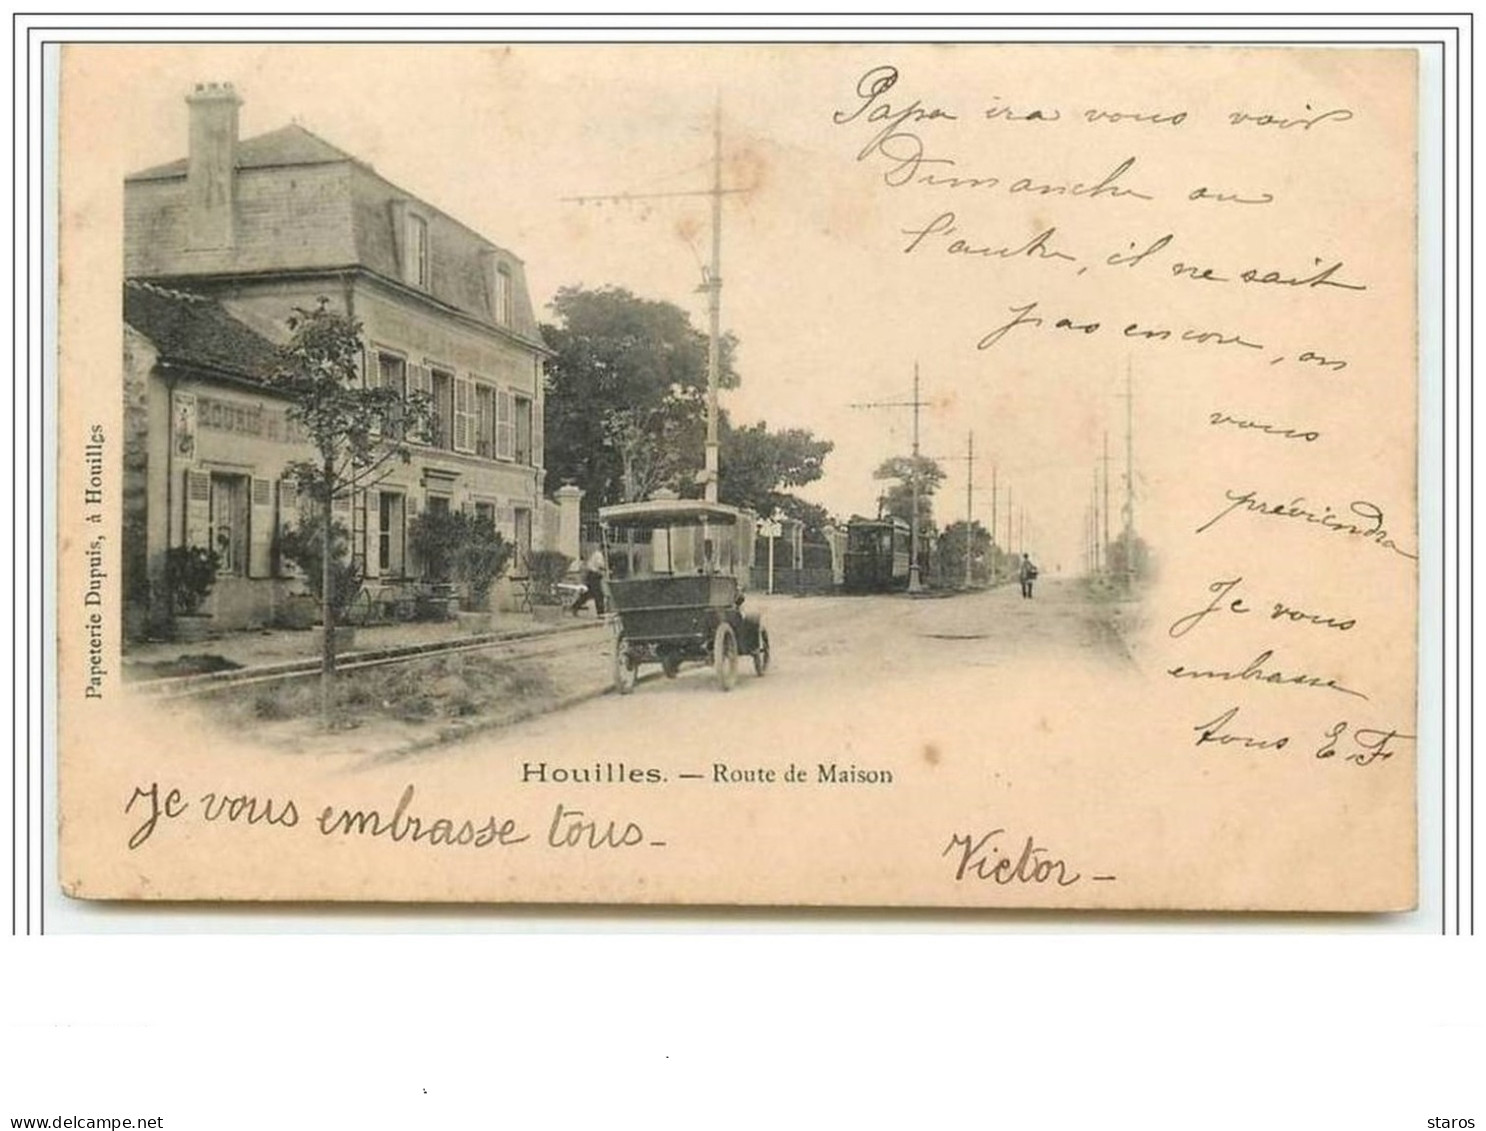 Papa ira vous voir
Dimanche ou
l'autre, il ne sait
pas encore, on
vous
préviendra
Je vous
embrasse
tous E F
Papeterie Dupuis, à Houilles
Houilles. — Route de Maison
Je vous embrasse tous -
Victor -
delcampe.net
staros